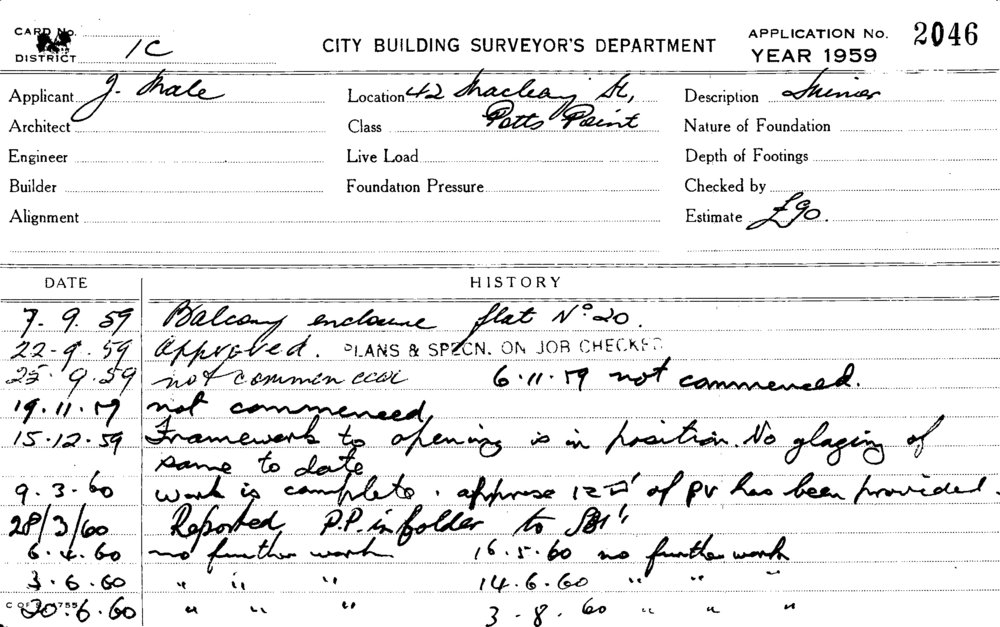 CARD No.
DISTRICT 1C
CITY BUILDING SURVEYOR'S DEPARTMENT
APPLICATION No. 2046
YEAR 1959
Applicant J. Male Location 42 Macleay St, Description Minor
Architect Class Potts Point Nature of Foundation
Engineer Live Load Depth of Footings
Builder Foundation Pressure Checked by
Alignment Estimate £90.
DATE HISTORY
7. 9. 59 Balcony enclosure flat No 20.
22-9.59 Approved. PLANS & SPECN. ON JOB CHECKED
25.9.59 not commenced 6.11.59 not commenced.
19.11.59 not commenced,
15.12.59 Framework to opening is in position. No glazing of
same to date
9.3.60 work is complete. approx 12 □' of PV has been provided.
28/3/60 Reported P.P. in folder to
6.4.60 no further work 16.5.60 no further work
3.6.60 " " " 14.6.60 " " "
20.6.60 " " " 3-8.60 " " "